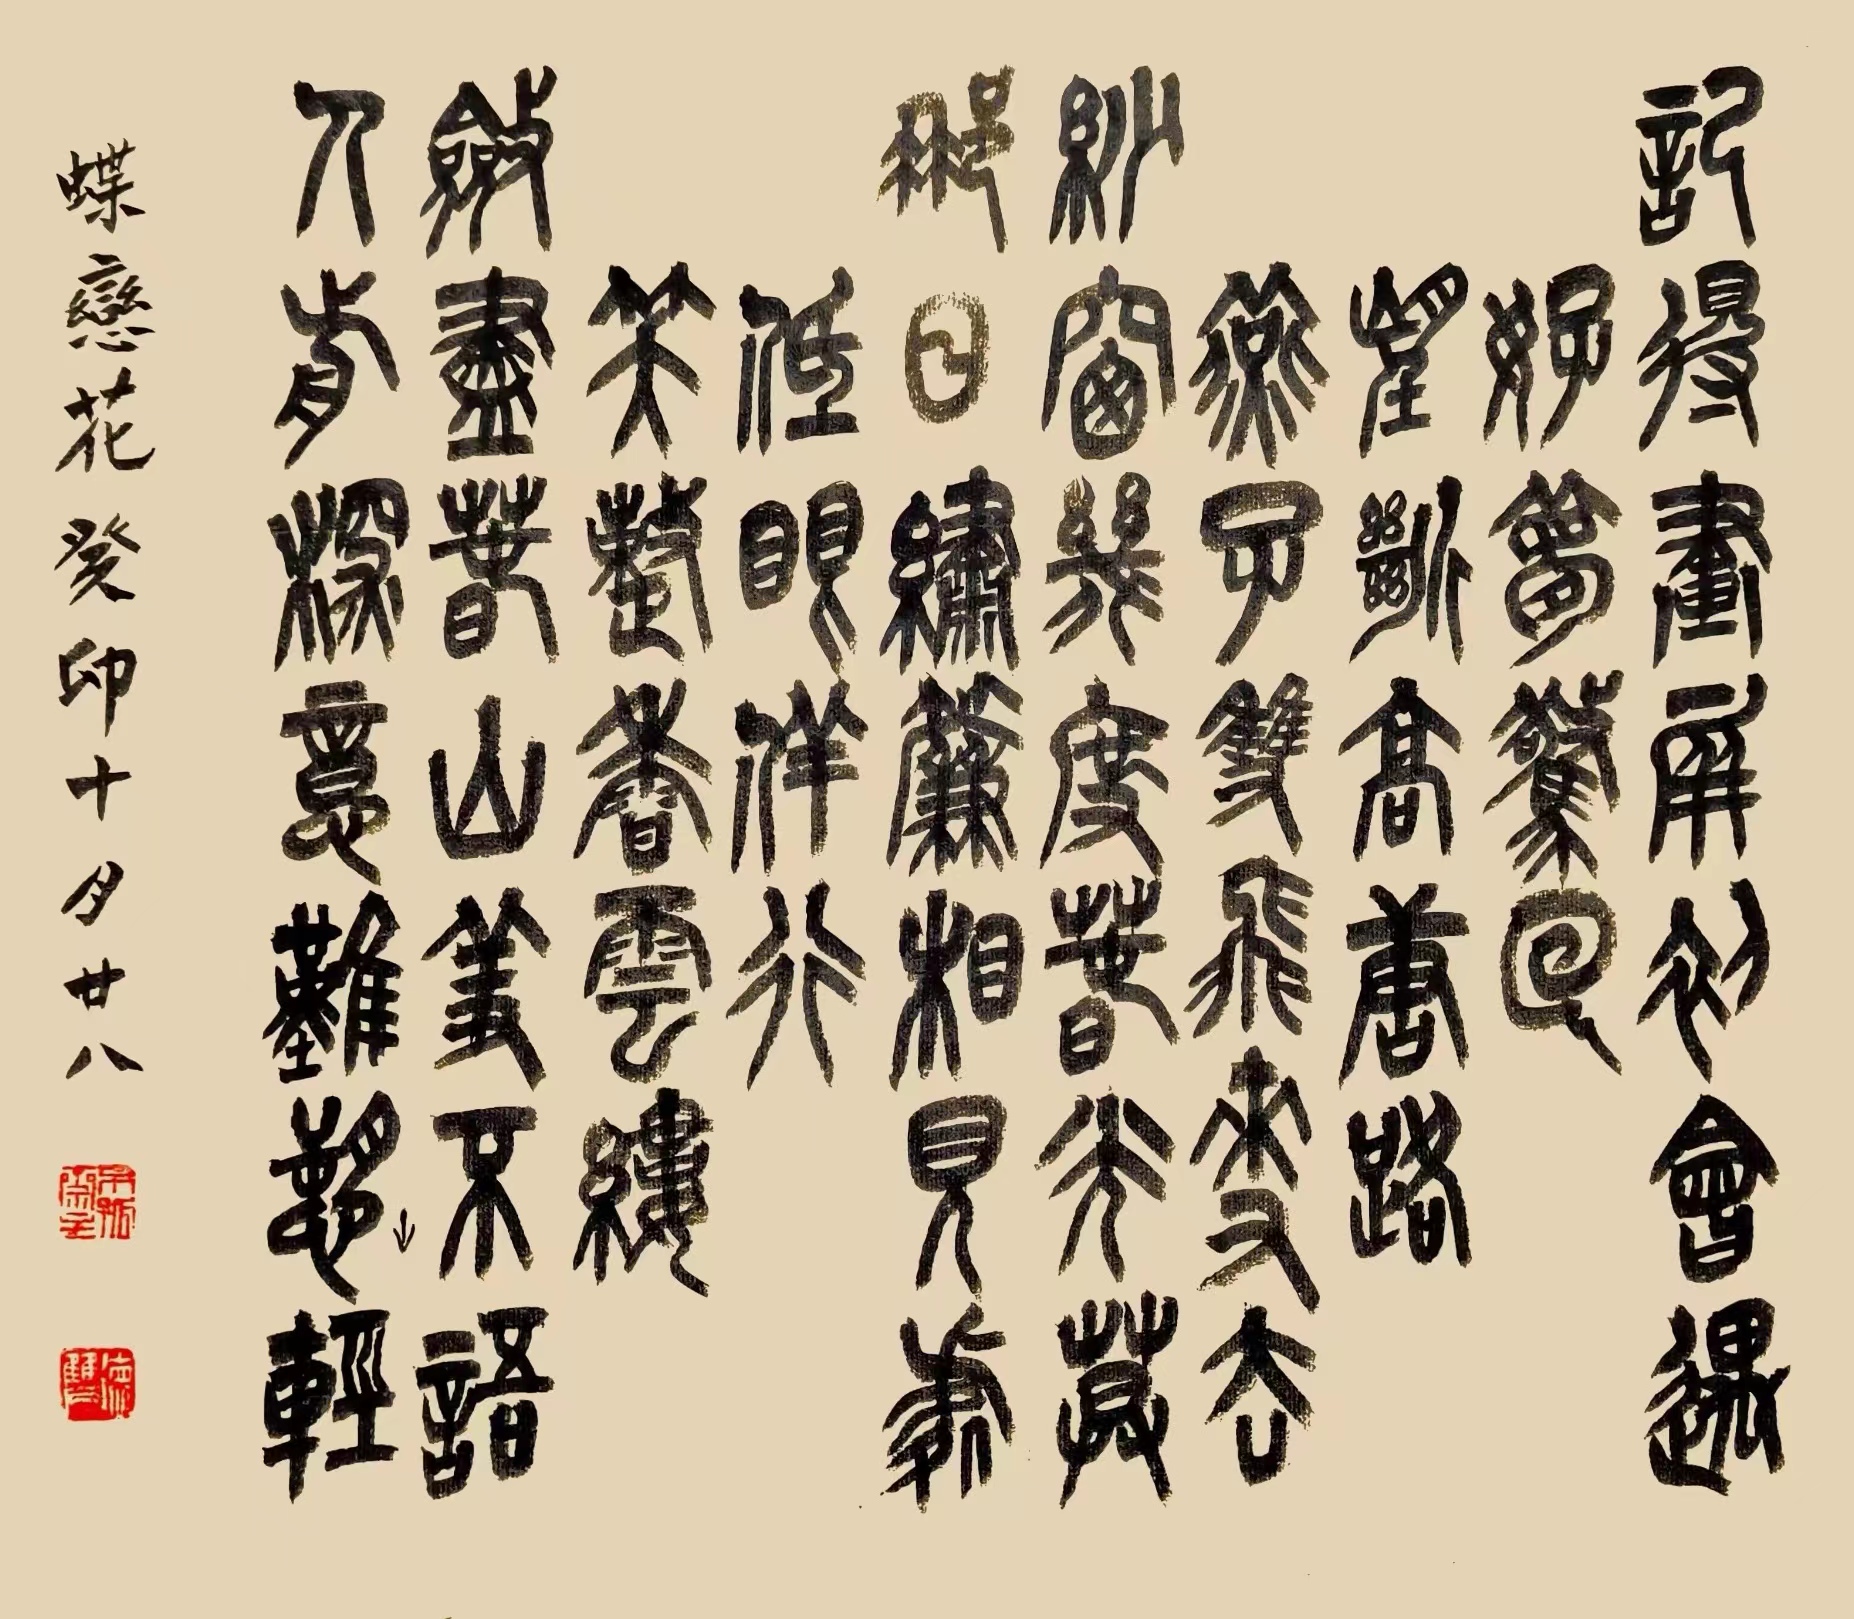 記得畫屏初會遇
好夢驚回
望斷高唐路
燕子雙飛來又去
紗窗幾度春光暮
那日繡簾相見處
低眼佯行
笑整香雲縷
斂盡春山羞不語
人前深意難愬輕
蝶戀花癸卯十月廿八